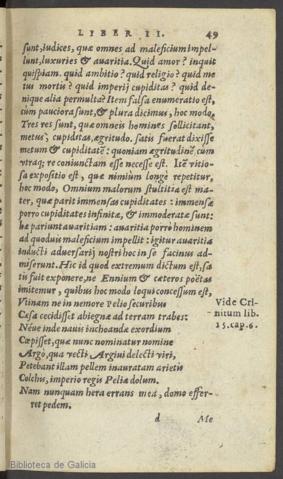 LIBER II. 49
sunt, iudices, quæ omnes ad maleficium impel-
lunt, luxuries & auaritia. Quid amor? inquit
quispiam. quid ambitio? quid religio? quid me
tus mortis? quid imperij cupiditas? quid de-
nique alia permulta? Item falsa enumeratio est,
cùm pauciora sunt, & plura dicimus, hoc modo,
Tres res sunt, quæ omneis homines sollicitant,
metus, cupiditas, ægritudo. satis fuerat dixisse
metum & cupiditatē: quoniam ægritudinē cum
vtraq; re coniunctam esse necesse est. Itē vitio-
sa expositio est, quæ nimium longè repetitur,
hoc modo, Omnium malorum stultitia est ma-
ter, quæ parit immensas cupiditates: immensæ
porro cupiditates infinitæ, & immoderatæ sunt:
hæ pariunt auaritiam: auaritia porrò hominem
ad quoduis maleficium impellit: igitur auaritia
inducti aduersarij nostri hoc in se facinus ad-
miserunt. Hic id quod extremum dictum est, sa
tis fuit exponere, ne Ennium & cæteros poëtas
imitemur, quibus hoc modo loqui concessum est,
Vtinam ne in nemore Pelio securibus
Cæsa cecidisset abiegna ad terram trabes:
Néue inde nauis inchoandæ exordium
Cœpisset, quæ nunc nominatur nomine
Argò, qua vecti Argiui delecti viri,
Petebant illam pellem inauratam arietis
Colchis, imperio regis Peliæ dolum.
Nam nunquam hera errans mea, domo effer-
ret pedem.
Vide Cri-
nitum lib.
15. cap. 6.
d Me
Biblioteca de Galicia